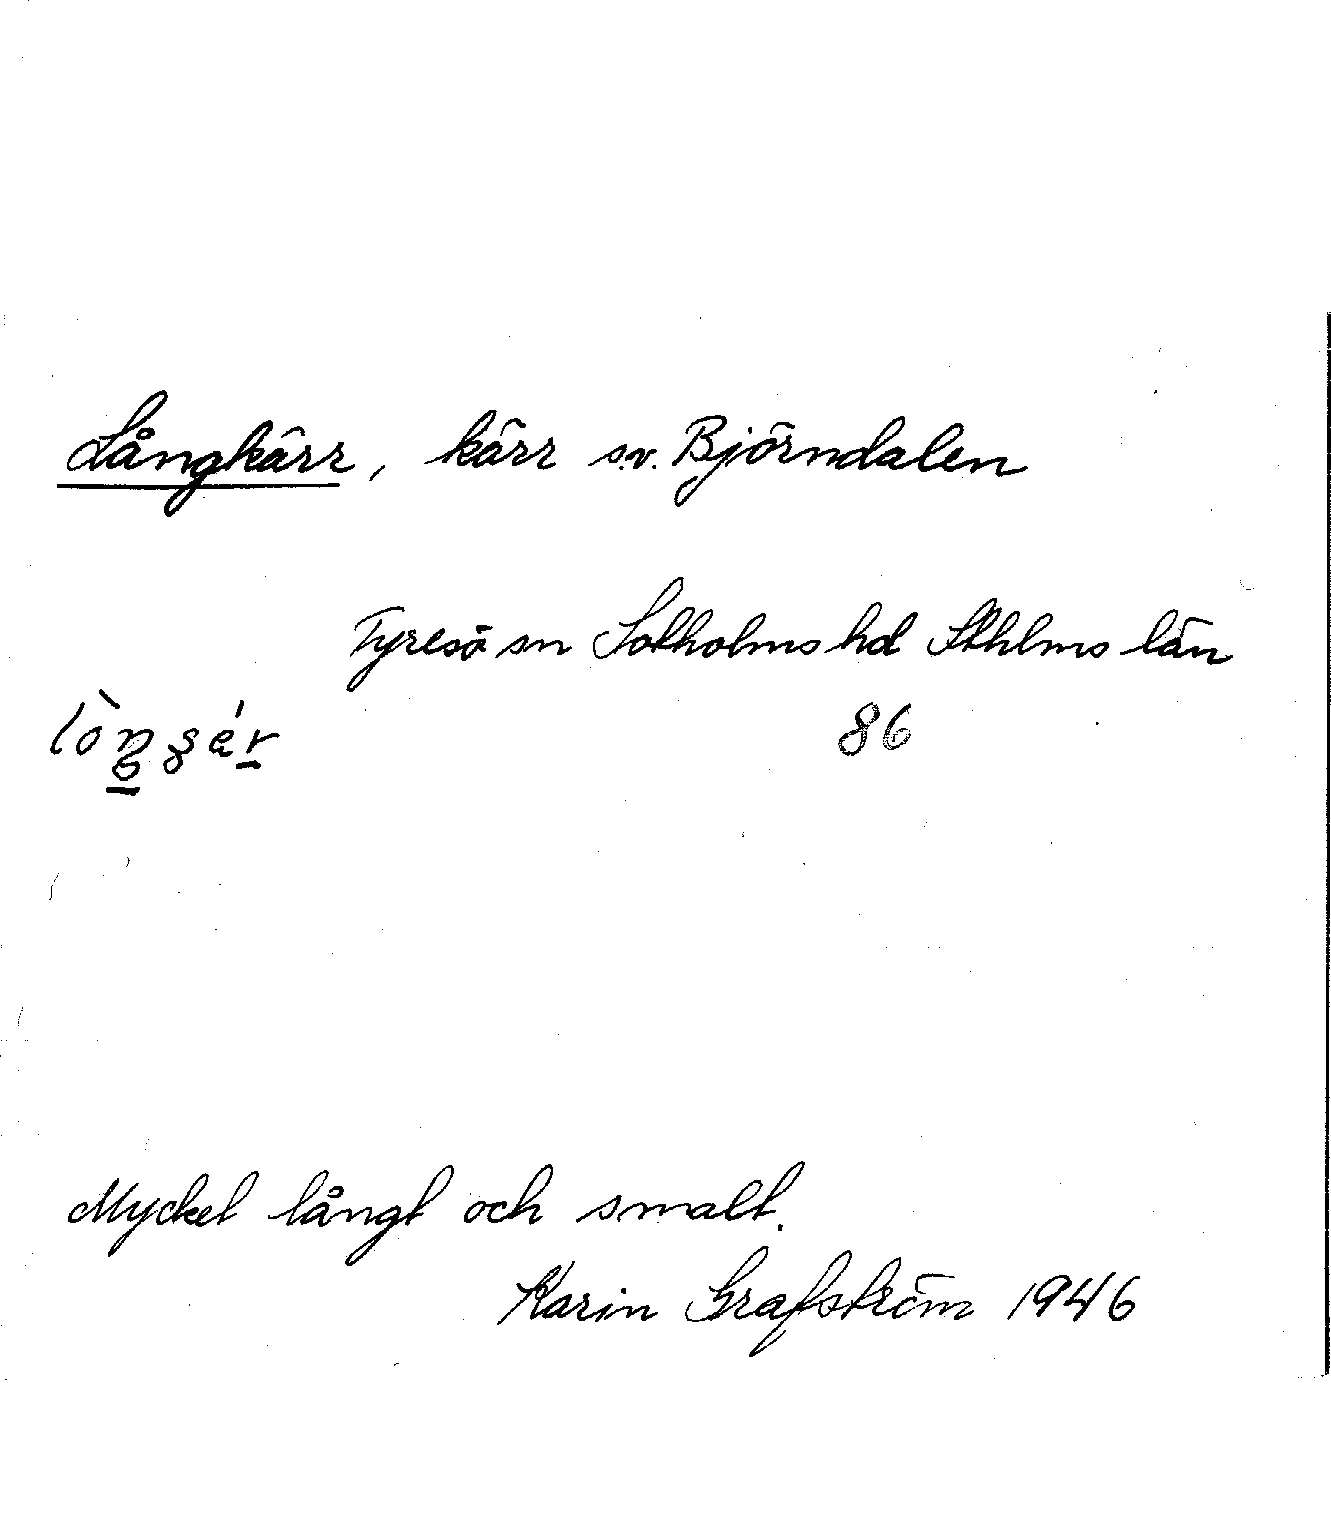 Långkärr, kärr s.v. Björndalen
Tyresö sn Sotholms hd Sthlms län
86
Mycket långt och smalt.
Karin Grafström 1946